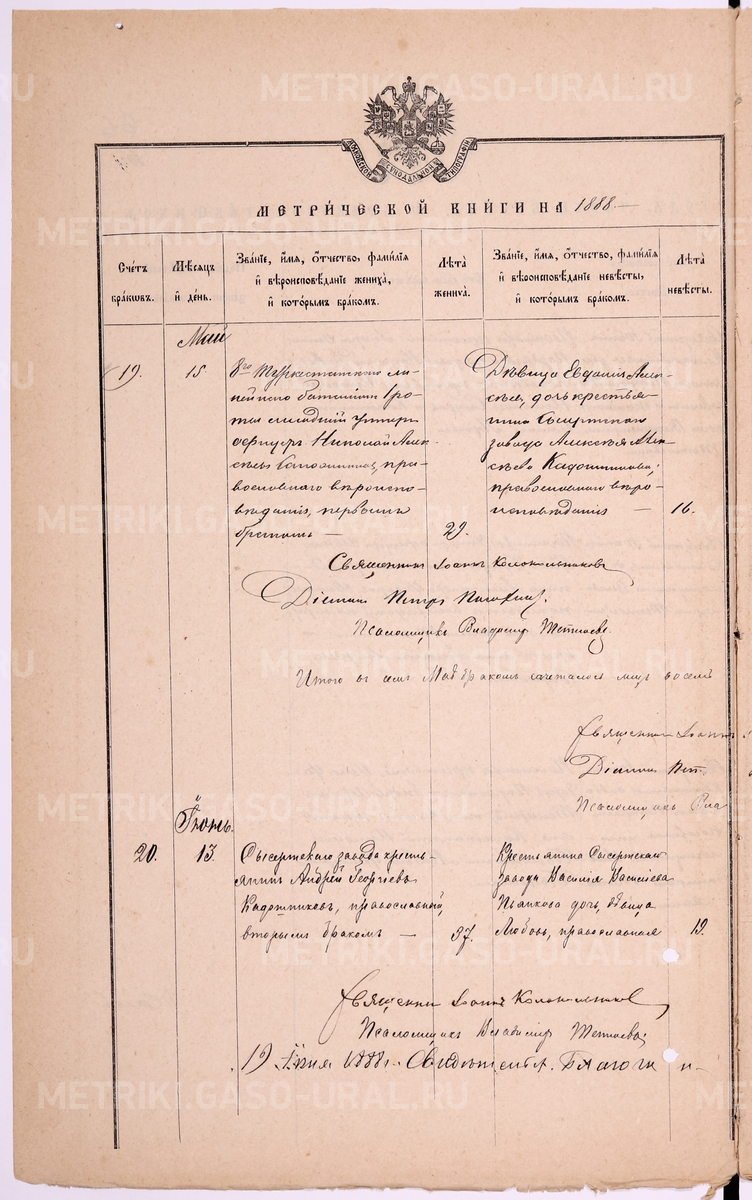 METRIKI.GASO-URAL.RU
МОСКОВСКОЙ СѴНОДАЛЬНОЙ ТИПОГРАФІИ
МЕТРИ́ЧЕСКОЙ КНИ́ГИ НА 1888.
Сче́тъ бра́ковъ.
Мѣ́сяцъ и҆ де́нь.
Зва́нїе, и҆́мя, ѻ҆́тчество, фами́лїя
и҆ вѣроисповѣ́данїе жениха̀,
и҆ кото́рымъ бра́комъ.
Лѣ́та
жениха̀.
Зва́нїе, и҆́мя, ѻ҆́тчество, фами́лїя
и҆ вѣроисповѣ́данїе невѣ́сты,
и҆ кото́рымъ бра́комъ.
Лѣ́та
невѣ́сты.
Май
19.
15
8го Туркестанскаго ли-
нейнаго баталіона 1 ро-
ты младшій унтеръ
офицеръ Николай Алек-
сѣевъ Сапожниковъ, пра-
вославнаго вѣроиспо-
вѣданія, первымъ
бракомъ —
29.
Дѣвица Евдокія Алек-
сѣева, дочь крестья-
нина Сысертскаго
завода Алексѣя Алек-
сѣева Кадошникова,
православнаго вѣро-
исповѣданія —
16.
Священникъ Іоаннъ Колокольниковъ
Діаконъ Петръ
Псаломщикъ Владимиръ Тетюевъ
Итого въ семъ Маѣ бракомъ сочеталось лицъ восемь
Священникъ Іоаннъ
Діаконъ Пет
Псаломщикъ Вла
Іюнь.
20.
13.
Сысертскаго завода кресть-
янинъ Андрей Георгіевъ
Кадошниковъ, православный,
вторымъ бракомъ —
37.
Крестьянина Сысертскаго
завода Василія Васильева
Пьянкова дочь, дѣвица
Любовь, православная
19.
Священникъ Іоаннъ Колокольниковъ
Псаломщикъ Владимиръ Тетюевъ
19 Іюня 1888 г. Свидѣтел. Благочин-